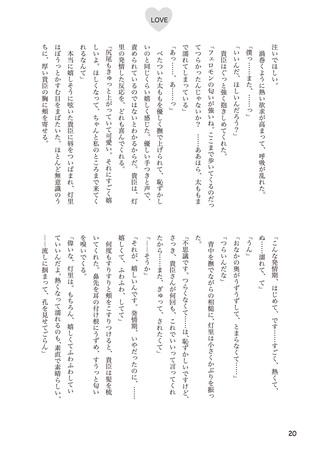 LOVE
注いでほしい。
渦巻くように熱い欲求が高まって、呼吸が乱れた。
「僕っ……また……っ」
「いいんだ、ほしいんだろう?」
貴臣はぐっと強く抱きしめてくれた。
「フェロモンの匂いが強いね。ここまで歩いてくるのだっ
てつらかったんじゃないか? ……ああほら、太ももま
で濡れてしまっている」
「あっ……、あ……っ」
べたついた太ももを優しく撫で上げられて、恥ずかし
いのと同じくらい嬉しく感じた。優しい手つきと声で、
責められているのではないとわかるからだ。貴臣は、灯
里の発情した反応を、どれも喜んでくれる。
「尻尾もきゅっと上がっていて可愛い。それにすごく嬉
しいよ。ほしくなって、ちゃんと私のところまで来てく
れるなんて」
本当に嬉しそうに呟いた貴臣に唇をついばまれ、灯里
はぼうっとかすむ目をまばたいた。ほとんど無意識のう
ちに、厚い貴臣の胸に頬を寄せる。
「こんな発情期、はじめて、です……すごく、熱くて、
ぬ……濡れて、て」
「うん」
「おなかの奥がうずうずして、とまらなくて……」
「つらいんだな」
背中を撫でながらの相槌に、灯里は小さくかぶりを振っ
た。
「不思議です。つらくなくて……は、恥ずかしいですけど、
さっき、貴臣さんが何回も、これでいいって言ってくれ
たから……また、ぎゅって、されたくて」
「……そうか」
「それが、嬉しいんです。発情期、いやだったのに、……
嬉しくて、ふわふわ、してて」
何度もすりすりと頬をこすりつけると、貴臣は髪を梳
いてくれた。鼻先を耳の付け根にうずめ、すうっと匂い
を嗅いでくる。
「偉いな、灯里は。もちろん、嬉しくてふわふわしてい
ていいんだよ。熱くなって濡れるのも、素直で素晴らしい。
……流しに掴まって、孔を見せてごらん」
20